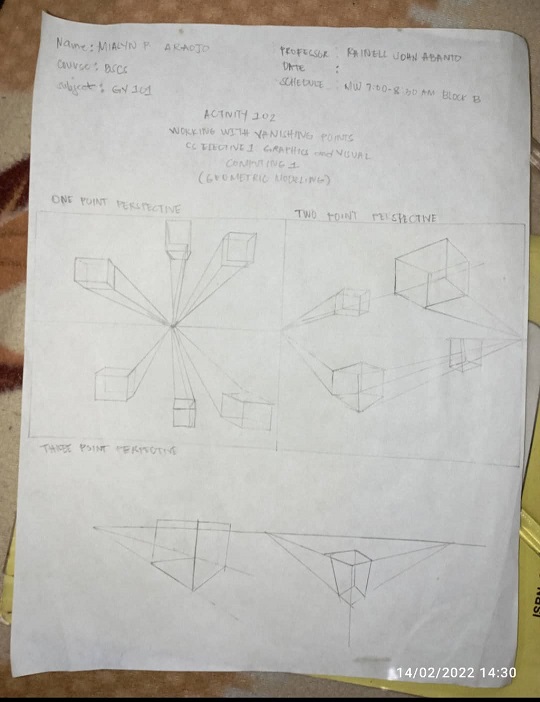 Name: MIALYN P AKAOJO
PROFESSOR : RAINELL JOHN ABANTO
COURSE: BSCS
DATE :
Subject: GV 101
SCHEDULE : MW 7:00-8:30 AM BLOCK B
ACTIVITY 102
WORKING WITH VANISHING POINTS
CS ELECTIVE 1 GRAPHICS and VISUAL
COMPUTING 1
(GEOMETRIC MODELING)
ONE POINT PERSPECTIVE
TWO POINT PERSPECTIVE
THREE POINT PERSPECTIVE
ISBN
14/02/2022 14:30